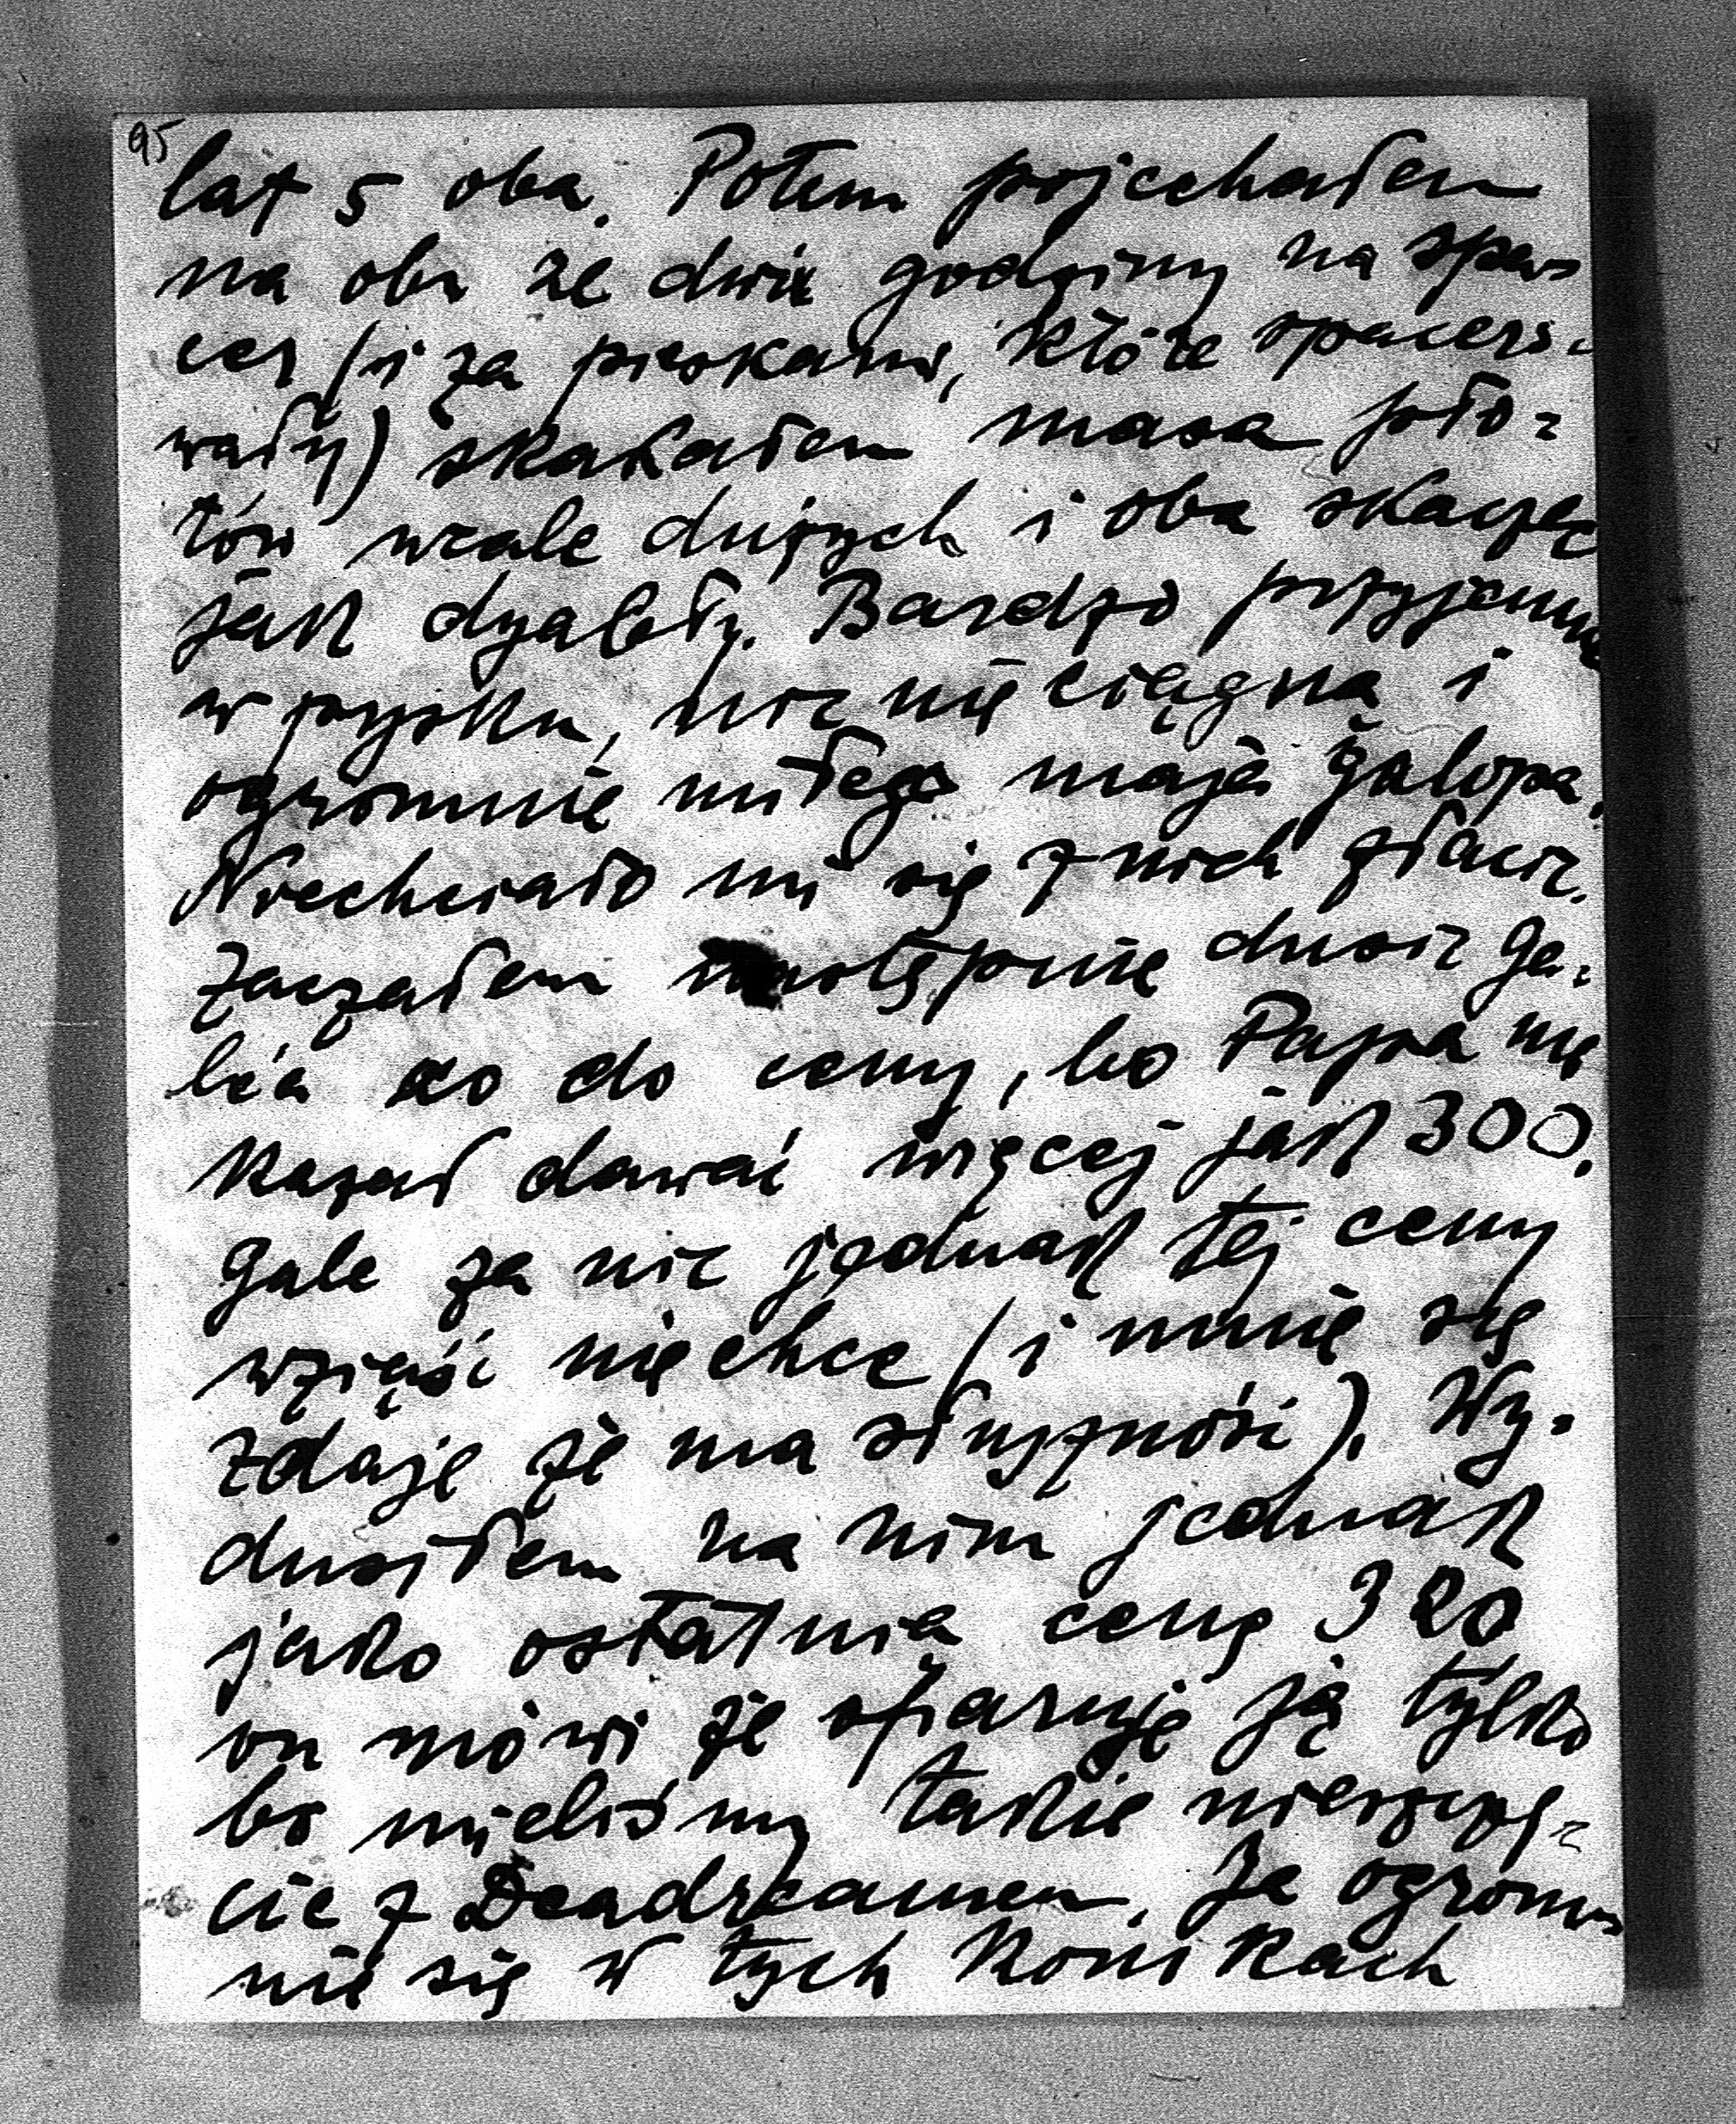 95
lat 5 oba. Potem pojechałem
na obu ze dwie godziny na spa=
cer (i za pieskami, które spacero=
wały) skakałem masa pło=
tów wcale dużych i oba skaczą
jak dyabły. Bardzo przyjemne
w pysku, nic nie ciągną i
ogromnie miłego mają galopa.
Niechciało mi się z nich złazić.
Zacząłem następnie dusić Ga=
lia co do ceny, bo Papa nie
kazał dawać więcej jak 300.
Gale za nic jednak tej ceny
wziąść nie chce (i mnie się
zdaje że ma słuszność). Wy=
dusiłem na nim jednak
jako ostatnia cenę 320
on mówi że ofiaruje ją tylko
bo mieliśmy takie nieszczę=
ście z Deadreamem. Ja ogrom=
nie się w tych konikach